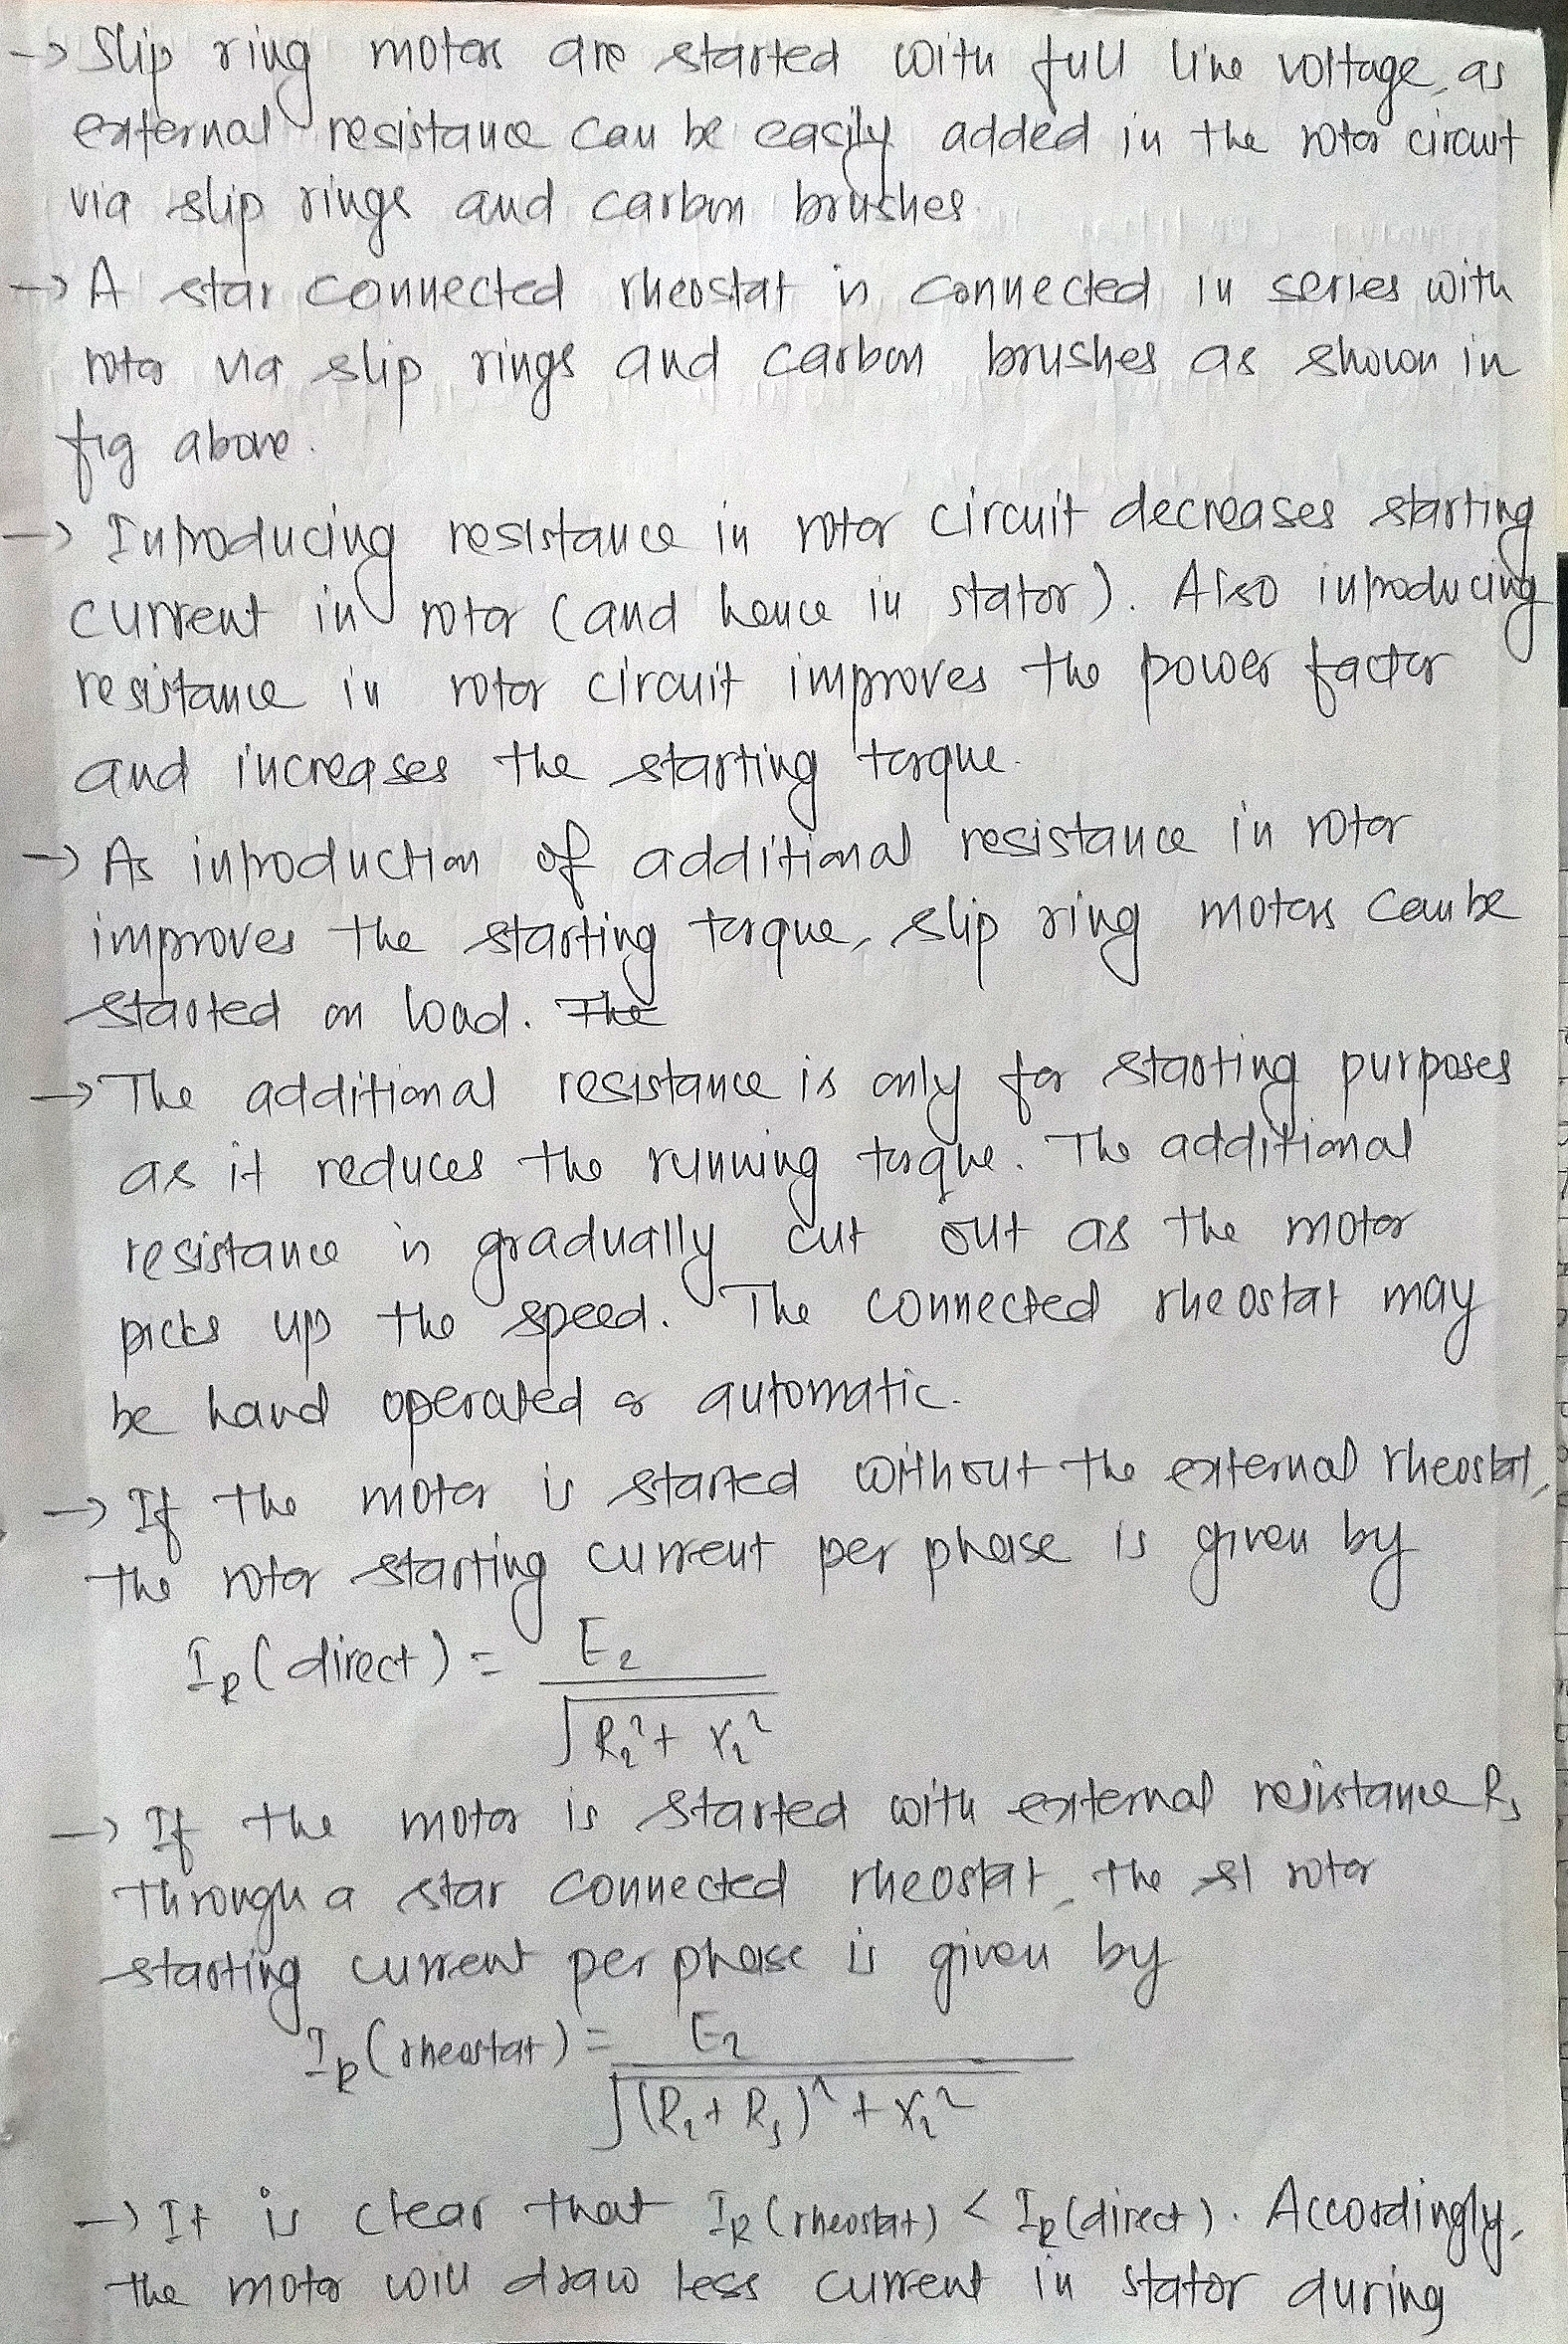 → Slip ring motors are started with full line voltage, as
external resistance can be easily added in the rotor circuit
via slip rings and carbon brushes.
→ A star connected rheostat is connected in series with
rotor via slip rings and carbon brushes as shown in
fig above.
→ Introducing resistance in rotor circuit decreases starting
current in rotor (and hence in stator). Also introducing
resistance in rotor circuit improves the power factor
and increases the starting torque.
→ As introduction of additional resistance in rotor
improves the starting torque, slip ring motors can be
started on load. The
→ The additional resistance is only for starting purposes
as it reduces the running torque. The additional
resistance is gradually cut out as the motor
picks up the speed. The connected rheostat may
be hand operated or automatic.
→ If the motor is started without the external rheostat,
the rotor starting current per phase is given by
I_R (direct) = E₂ / √(R₂² + X₂²)
→ If the motor is started with external resistance R_s
through a star connected rheostat, the st rotor
starting current per phase is given by
I_R (rheostat) = E₂ / √((R₂ + R_s)² + X₂²)
→ It is clear that I_R (rheostat) < I_R (direct). Accordingly,
the motor will draw less current in stator during